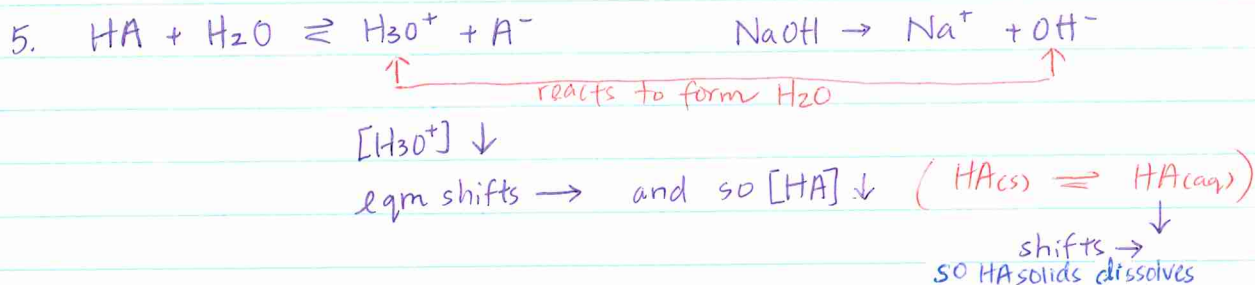 5. HA + H2O ⇌ H3O+ + A- NaOH → Na+ + OH-
reacts to form H2O
[H3O+] ↓
eqm shifts → and so [HA] ↓ (HA(s) ⇌ HA(aq))
↓
shifts →
so HA solids dissolves